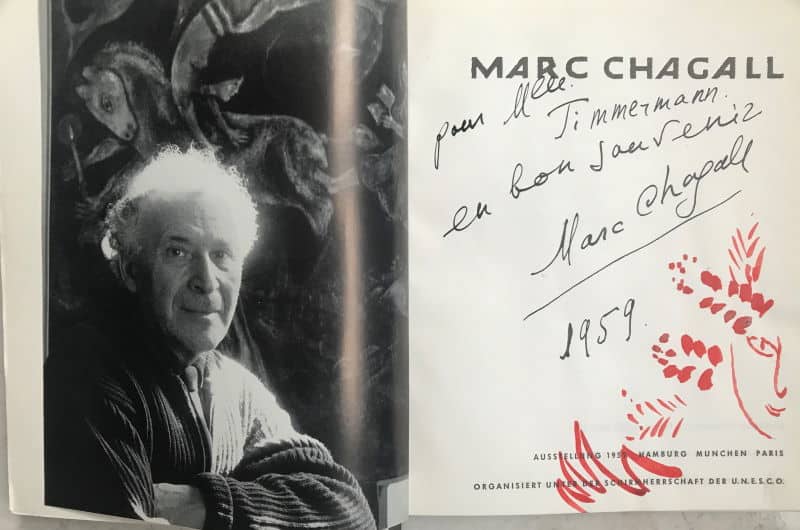 MARC CHAGALL
pour Mlle.
Timmermann.
en bon souvenir
Marc Chagall
1959.
AUSSTELLUNG 1959 HAMBURG MÜNCHEN PARIS
ORGANISIERT UNTER DER SCHIRMHERRSCHAFT DER U.N.E.S.C.O.